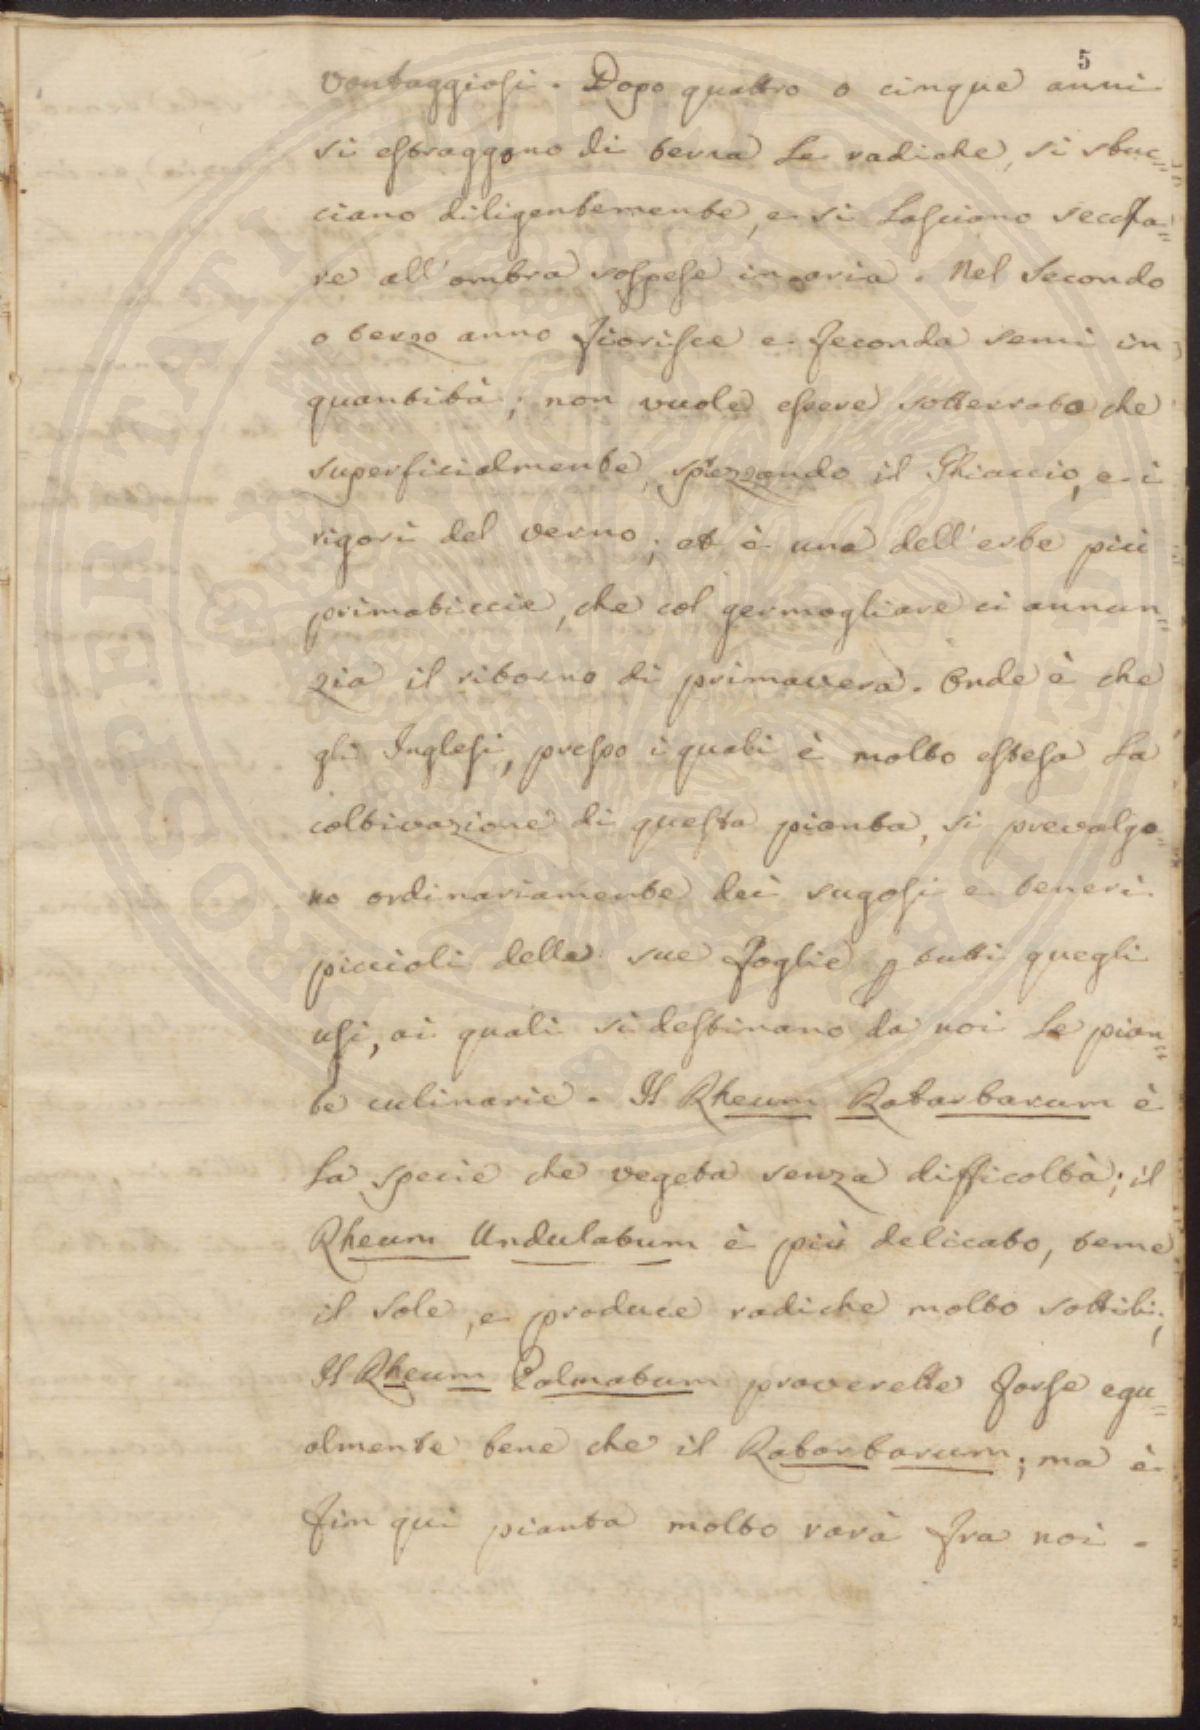 5
vantaggiosi. Dopo quattro o cinque anni
si estraggono di terra le radiche, si sbuc=
ciano diligentemente, e si lasciano secca=
re all'ombra sospese in aria. Nel Secondo
o terzo anno fiorisce e feconda semi in
quantità; non vuole essere sotterrata che
superficialmente, sprezzando il Ghiaccio, e i
rigori del verno; et è una dell'erbe più
primaticcie, che col germogliare ci annun=
zia il ritorno di primavera. Onde è che
gli Inglesi, presso i quali è molto estesa la
coltivazione di questa pianta, si prevalgo=
no ordinariamente dei sugosi e teneri
piccioli delle sue foglie p tutti quegli
usi, ai quali si destinano da noi le pian=
te culinarie. Il Rheum Rabarbarum è
la specie che vegeta senza difficoltà; il
Rheum Undulatum è più delicato, teme
il Sole, e produce radiche molto sottili;
Il Rheum Palmatum proverebbe forse egu=
almente bene che il Rabarbarum; ma è
fin qui pianta molto rara fra noi.
PROSPERITATI PUBLICAE AUGENDAE